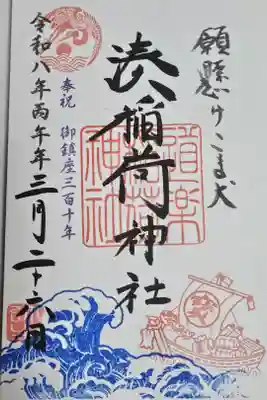 願懸けこま犬
湊稲荷神社
奉祝 御鎮座三百十年
令和八年丙午年三月二十六日